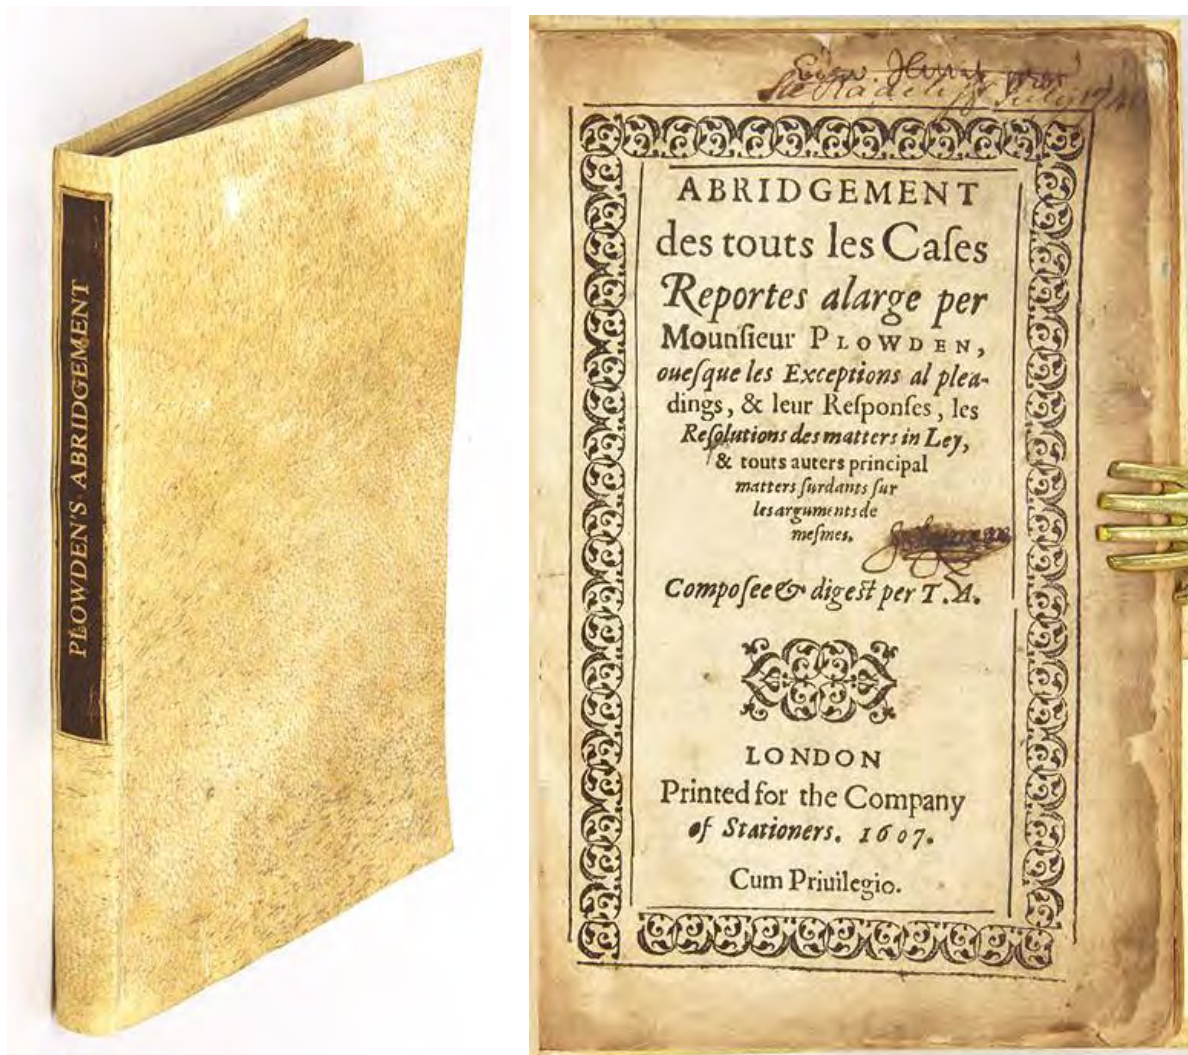 PLOWDEN'S ABRIDGEMENT
ABRIDGEMENT
des touts les Caſes
Reportes alarge per
Mounſieur PLOWDEN,
oueſque les Exceptions al plea-
dings, & leur Reſponſes, les
Reſolutions des matters in Ley,
& touts auters principal
matters ſurdants ſur
les arguments de
meſmes.
Compoſee & digeſt per T. A.
LONDON
Printed for the Company
of Stationers. 1607.
Cum Priuilegio.